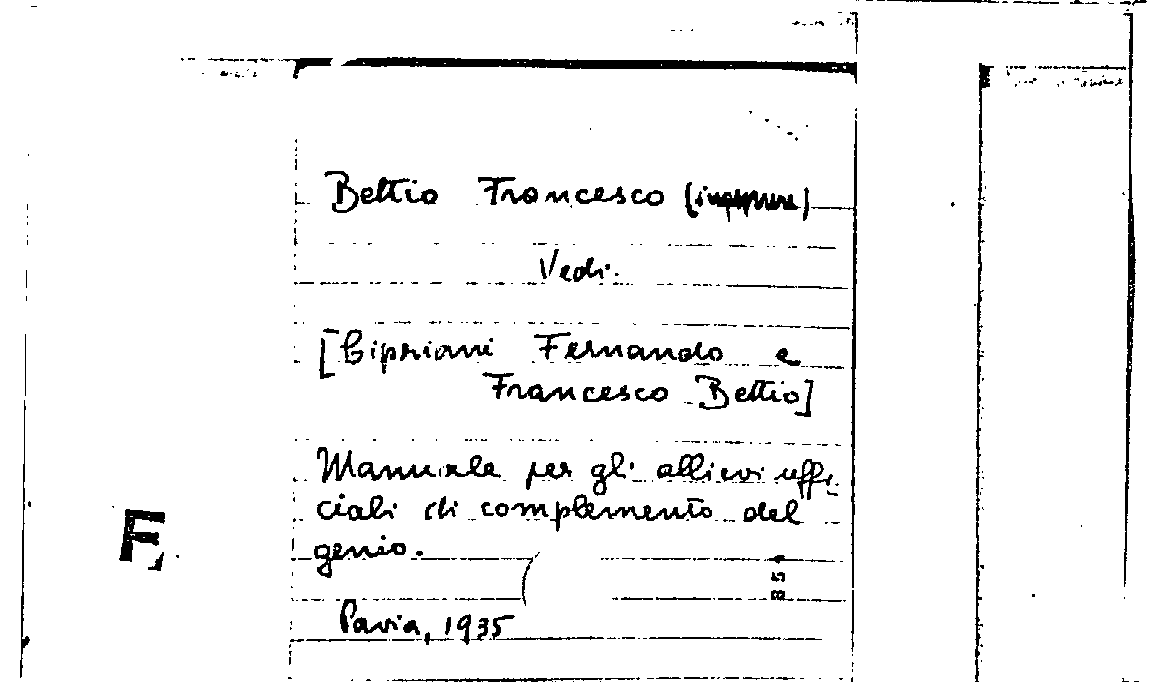 Bettio Francesco (ingegnere)
Vedi.
[Cipriani Fernando e
Francesco Bettio]
Manuale per gli allievi uffi-
ciali di complemento del
genio.
Pavia, 1935
F.